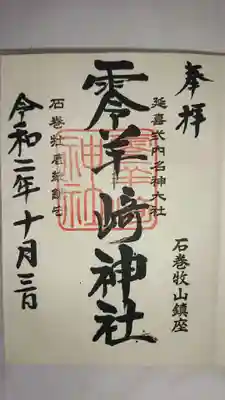 奉拝
石巻牧山鎮座
延喜式内名神大社
零羊崎神社
石巻牡鹿郡
令和二年十月三日